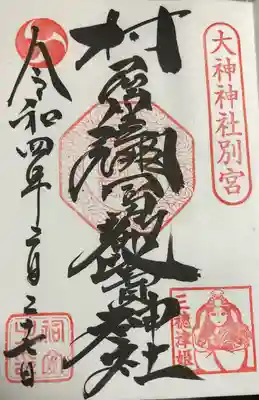 大神神社別宮
三穂津姫
村屋坐彌冨都比賣神社
令和四年二月二十七日